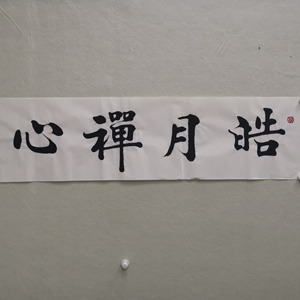 皓月禪心